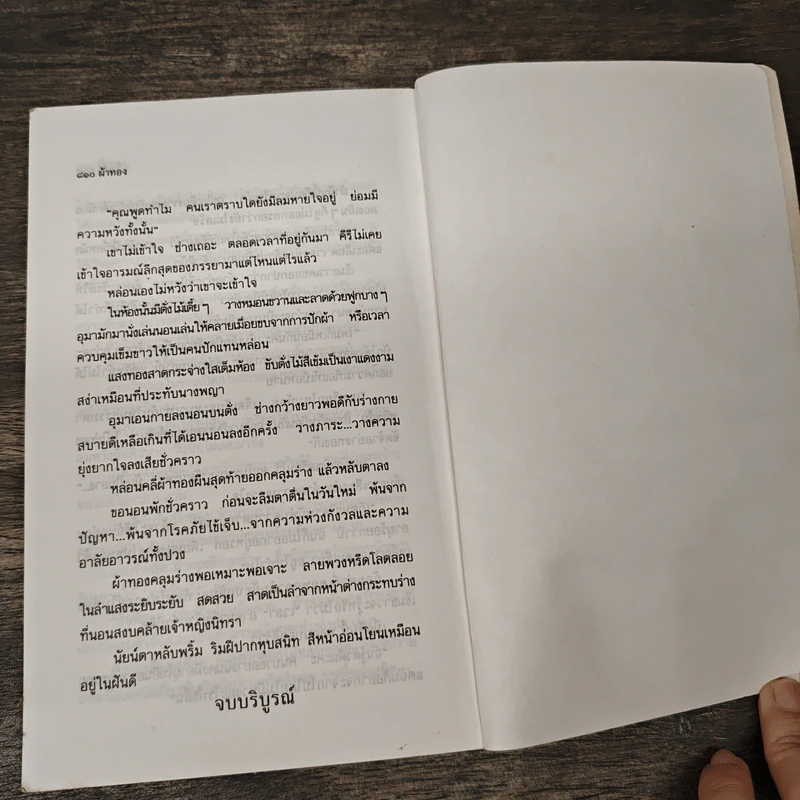 ๘๑๐ ผ้าทอง
"คุณพูดทำไม คนเราตราบใดยังมีลมหายใจอยู่ ย่อมมี
ความหวังทั้งนั้น"
เขาไม่เข้าใจ ช่างเถอะ ตลอดเวลาที่อยู่กันมา คีรีไม่เคย
เข้าใจอารมณ์ลึกสุดของภรรยามาแต่ไหนแต่ไรแล้ว
หล่อนเองไม่หวังว่าเขาจะเข้าใจ
ในห้องนั้นมีตั่งไม้เตี้ยๆ วางหมอนขวานและลาดด้วยฟูกบางๆ
อุมามักมานั่งเล่นนอนเล่นให้คลายเมื่อยขบจากการปักผ้า หรือเวลา
ควบคุมเข็มขาวให้เป็นคนปักแทนหล่อน
แสงทองสาดกระจ่างใสเต็มห้อง ขับตั่งไม้สีเข้มเป็นเงาแดงงาม
สง่าเหมือนที่ประทับนางพญา
อุมาเอนกายลงนอนบนตั่ง ช่างกว้างยาวพอดีกับร่างกาย
สบายดีเหลือเกินที่ได้เอนนอนลงอีกครั้ง วางภาระ...วางความ
ยุ่งยากใจลงเสียชั่วคราว
หล่อนคลี่ผ้าทองผืนสุดท้ายออกคลุมร่าง แล้วหลับตาลง
ขอนอนพักชั่วคราว ก่อนจะลืมตาตื่นในวันใหม่ พ้นจาก
ปัญหา...พ้นจากโรคภัยไข้เจ็บ...จากความห่วงกังวลและความ
อาลัยอาวรณ์ทั้งปวง
ผ้าทองคลุมร่างพอเหมาะพอเจาะ ลายพวงหรีดโลดลอย
ในลำแสงระยิบระยับ สดสวย สาดเป็นลำจากหน้าต่างกระทบร่าง
ที่นอนสงบคล้ายเจ้าหญิงนิทรา
นัยน์ตาหลับพริ้ม ริมฝีปากหุบสนิท สีหน้าอ่อนโยนเหมือน
อยู่ในฝันดี
จบบริบูรณ์